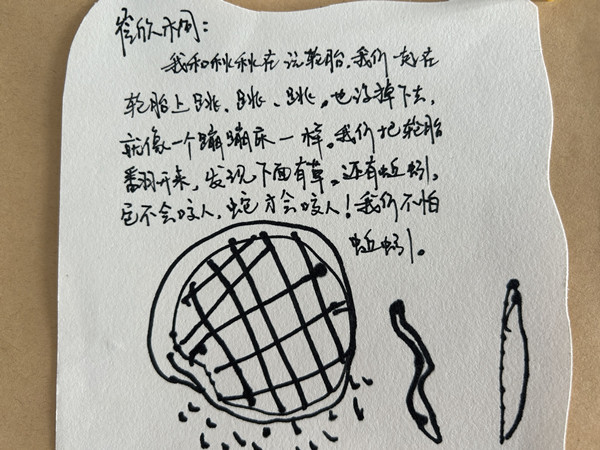 我和秋秋在玩轮胎，我们一起在
轮胎上跳、跳、跳。也没掉下去，
就像一个蹦蹦床一样。我们把轮胎
翻开来，发现下面有草，还有蚯蚓，
它不会咬人，蛇才会咬人！我们不怕
蚯蚓。